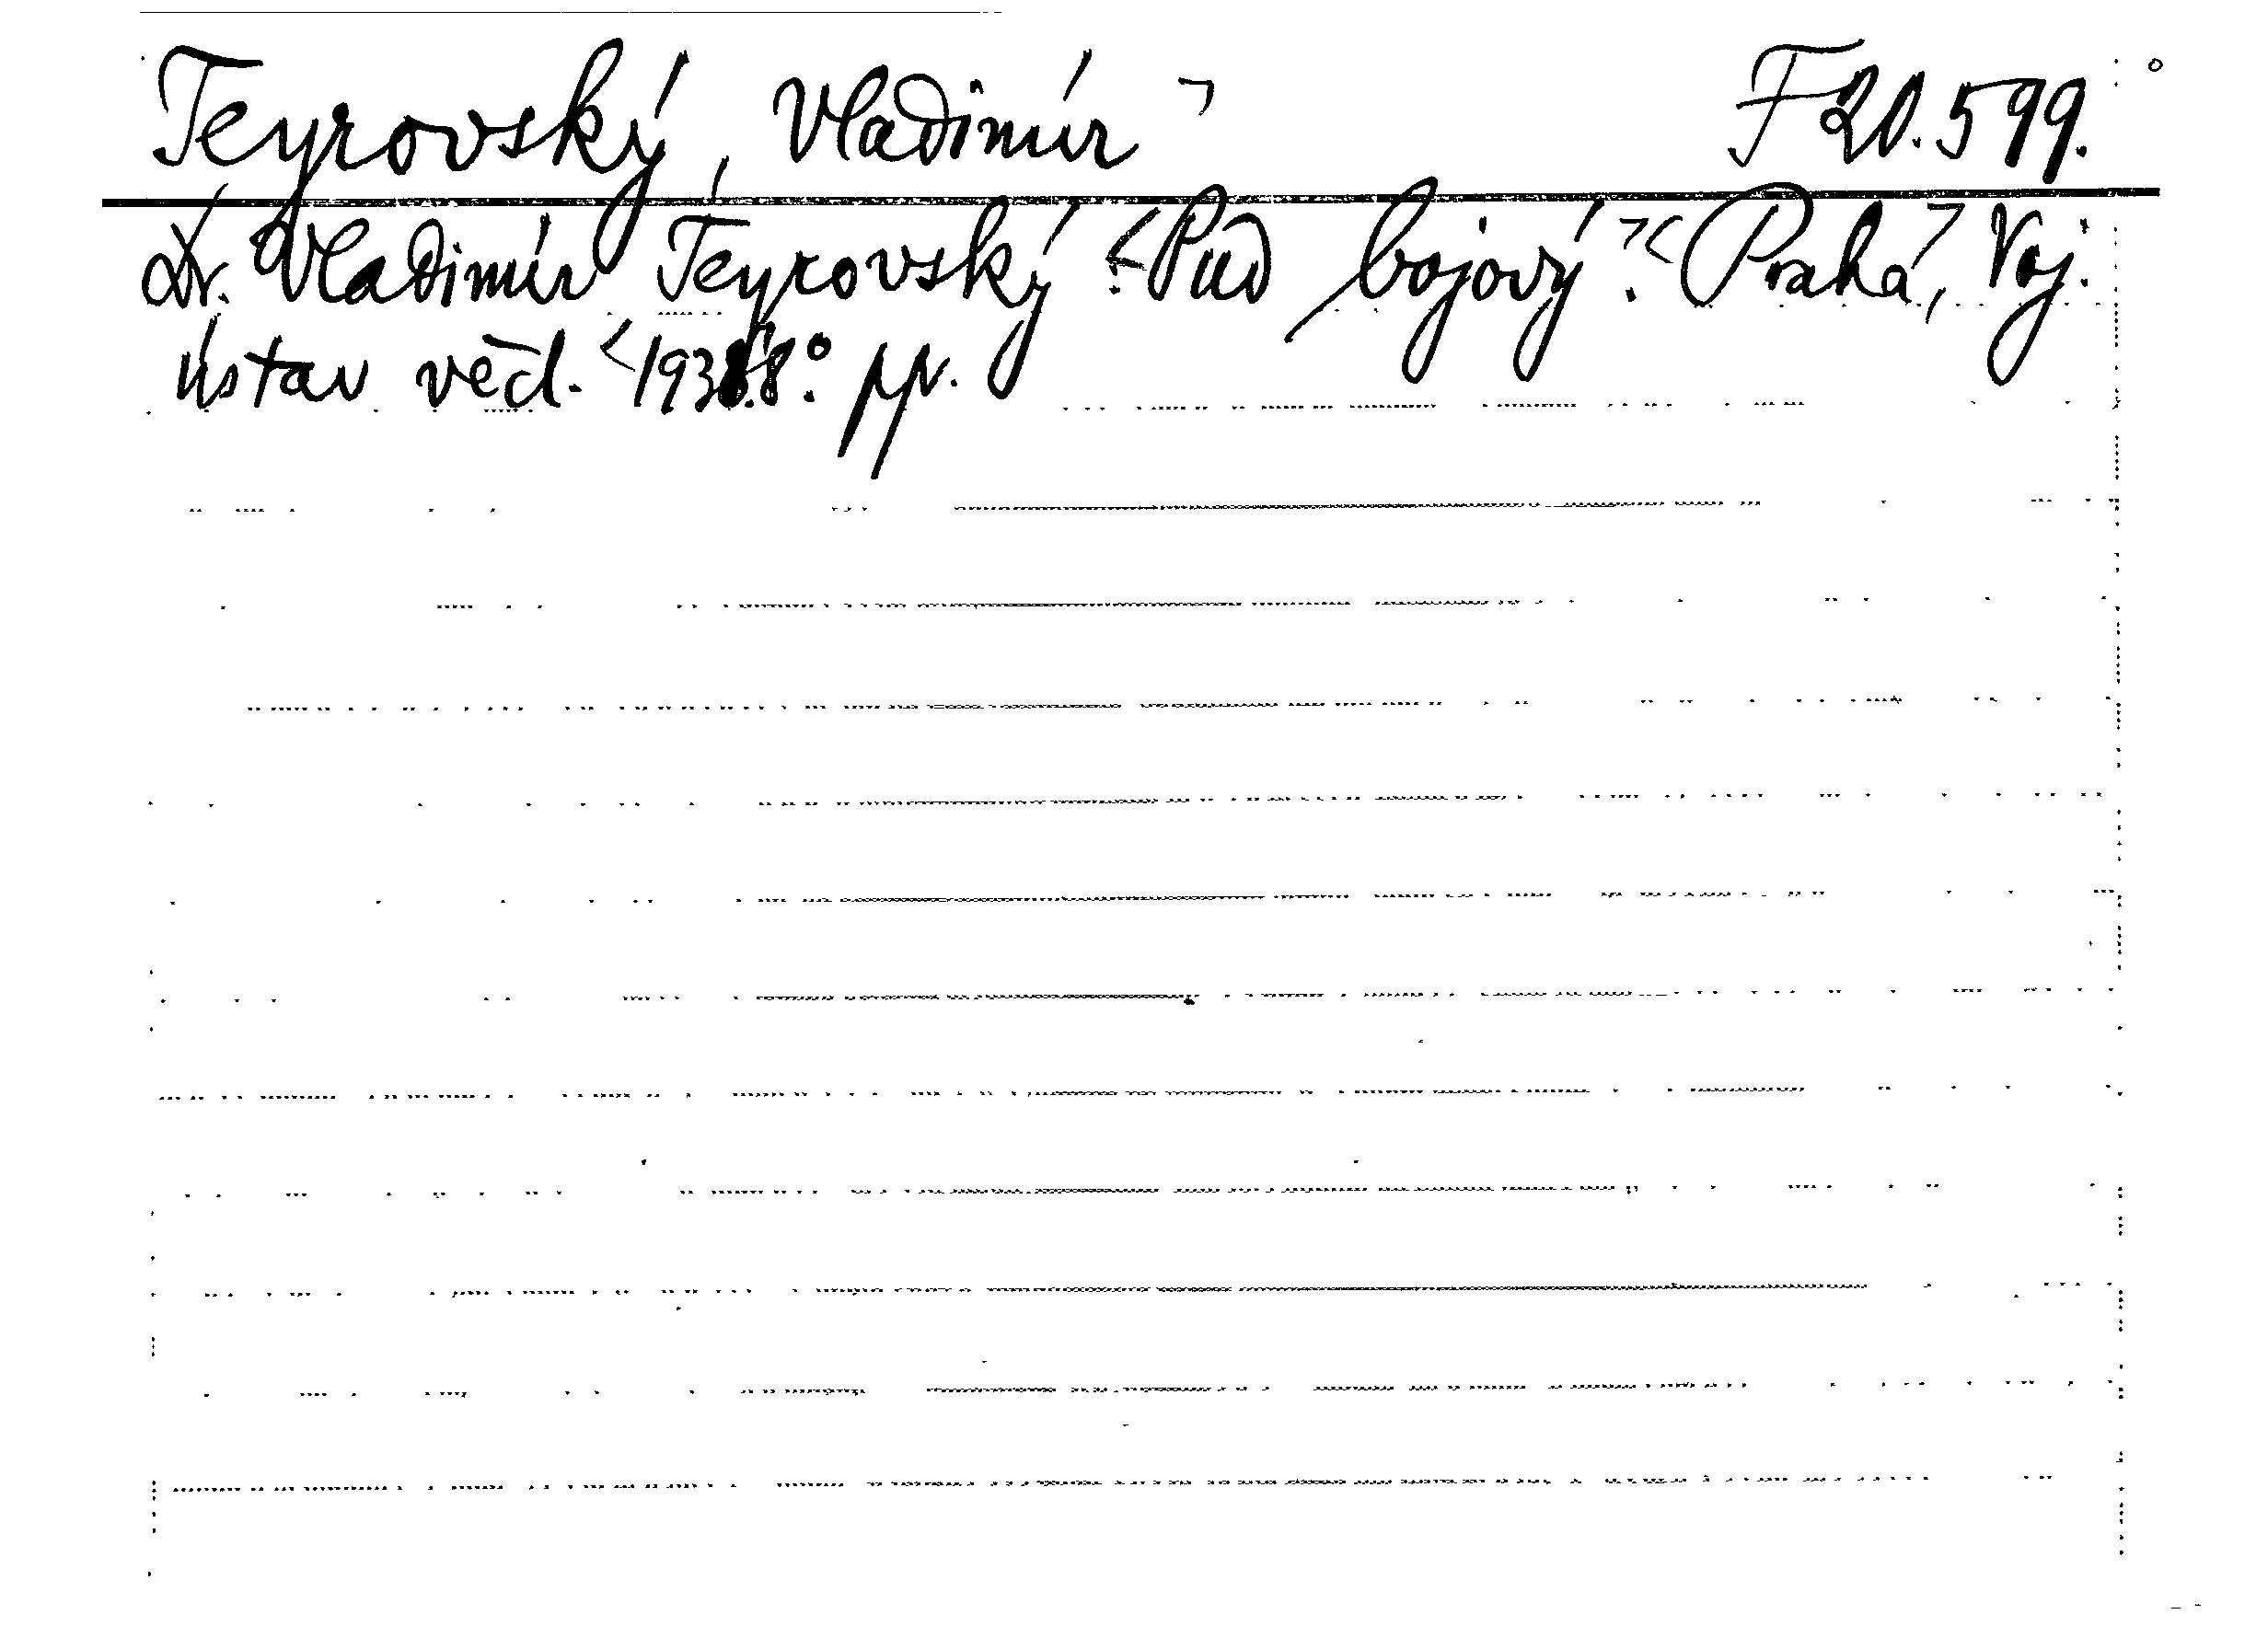 Teyrovský, Vladimír F 20.599.
Dr. Vladimír Teyrovský: Pud bojový. Praha, Voj.
ústav věd. 8° pp.